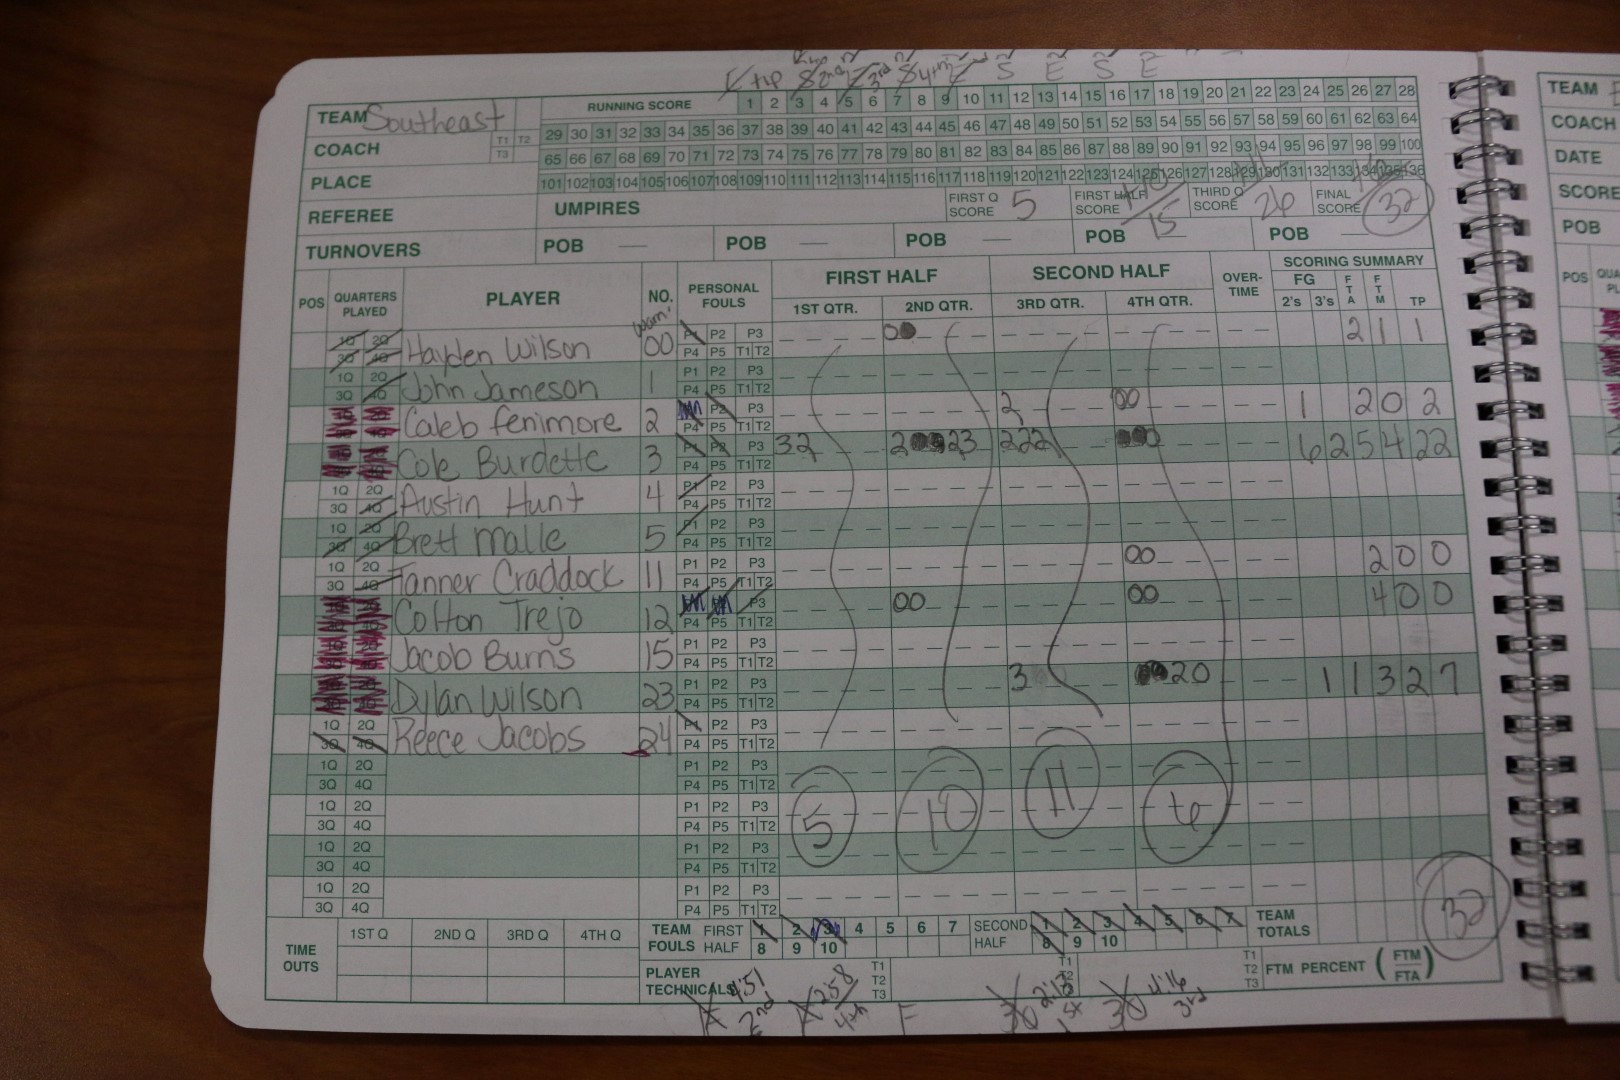 tip 2nd 3rd 4th S E S E
TEAM Southeast
RUNNING SCORE 1 2 3 4 5 6 7 8 9 10 11 12 13 14 15 16 17 18 19 20 21 22 23 24 25 26 27 28
29 30 31 32 33 34 35 36 37 38 39 40 41 42 43 44 45 46 47 48 49 50 51 52 53 54 55 56 57 58 59 60 61 62 63 64
COACH T1 T2 T3
65 66 67 68 69 70 71 72 73 74 75 76 77 78 79 80 81 82 83 84 85 86 87 88 89 90 91 92 93 94 95 96 97 98 99 100
PLACE
101 102 103 104 105 106 107 108 109 110 111 112 113 114 115 116 117 118 119 120 121 122 123 124 125 126 127 128 129 130 131 132 133 134 135 136
REFEREE UMPIRES FIRST Q SCORE 5 FIRST HALF SCORE 15 THIRD Q SCORE 26 FINAL SCORE 32
TURNOVERS POB POB POB POB POB
POS QUARTERS PLAYED PLAYER NO. PERSONAL FOULS FIRST HALF SECOND HALF OVER-TIME SCORING SUMMARY
1ST QTR. 2ND QTR. 3RD QTR. 4TH QTR. FG 2's 3's FTA FTM TP
Warn.
1Q 2Q 3Q 4Q Hayden Wilson 00 P1 P2 P3 P4 P5 T1 T2 2 1 1
1Q 2Q 3Q 4Q John Jameson 1 P1 P2 P3 P4 P5 T1 T2
Caleb Fenimore 2 P2 P3 P4 P5 T1 T2 2 00 1 2 0 2
Cole Burdette 3 P1 P2 P3 P4 P5 T1 T2 32 2 23 222 6 2 5 4 22
1Q 2Q 3Q 4Q Austin Hunt 4 P1 P2 P3 P4 P5 T1 T2
1Q 2Q 3Q 4Q Brett Malle 5 P1 P2 P3 P4 P5 T1 T2
1Q 2Q 3Q 4Q Tanner Craddock 11 P1 P2 P3 P4 P5 T1 T2 00 2 0 0
Colton Trejo 12 P3 P4 P5 T1 T2 00 00 4 0 0
Jacob Burns 15 P1 P2 P3 P4 P5 T1 T2
Dylan Wilson 23 P1 P2 P3 P4 P5 T1 T2 3 20 1 1 3 2 7
1Q 2Q 3Q 4Q Reece Jacobs 24 P1 P2 P3 P4 P5 T1 T2
1Q 2Q P1 P2 P3
3Q 4Q P4 P5 T1 T2
1Q 2Q P1 P2 P3
3Q 4Q P4 P5 T1 T2
1Q 2Q P1 P2 P3
3Q 4Q P4 P5 T1 T2
1Q 2Q P1 P2 P3
3Q 4Q P4 P5 T1 T2
5 10 11 6
32
TIME OUTS 1ST Q 2ND Q 3RD Q 4TH Q
TEAM FOULS FIRST HALF 1 2 3 4 5 6 7 8 9 10 SECOND HALF 1 2 3 4 5 6 7 8 9 10 TEAM TOTALS
PLAYER TECHNICALS T1 T2 T3 T1 T2 T3 T1 T2 T3 FTM PERCENT (FTM/FTA)
4:51 2nd 2:58 4th F 30 2:13 1st 30 4:16 3rd
TEAM
COACH
DATE
SCORE
POB
POS